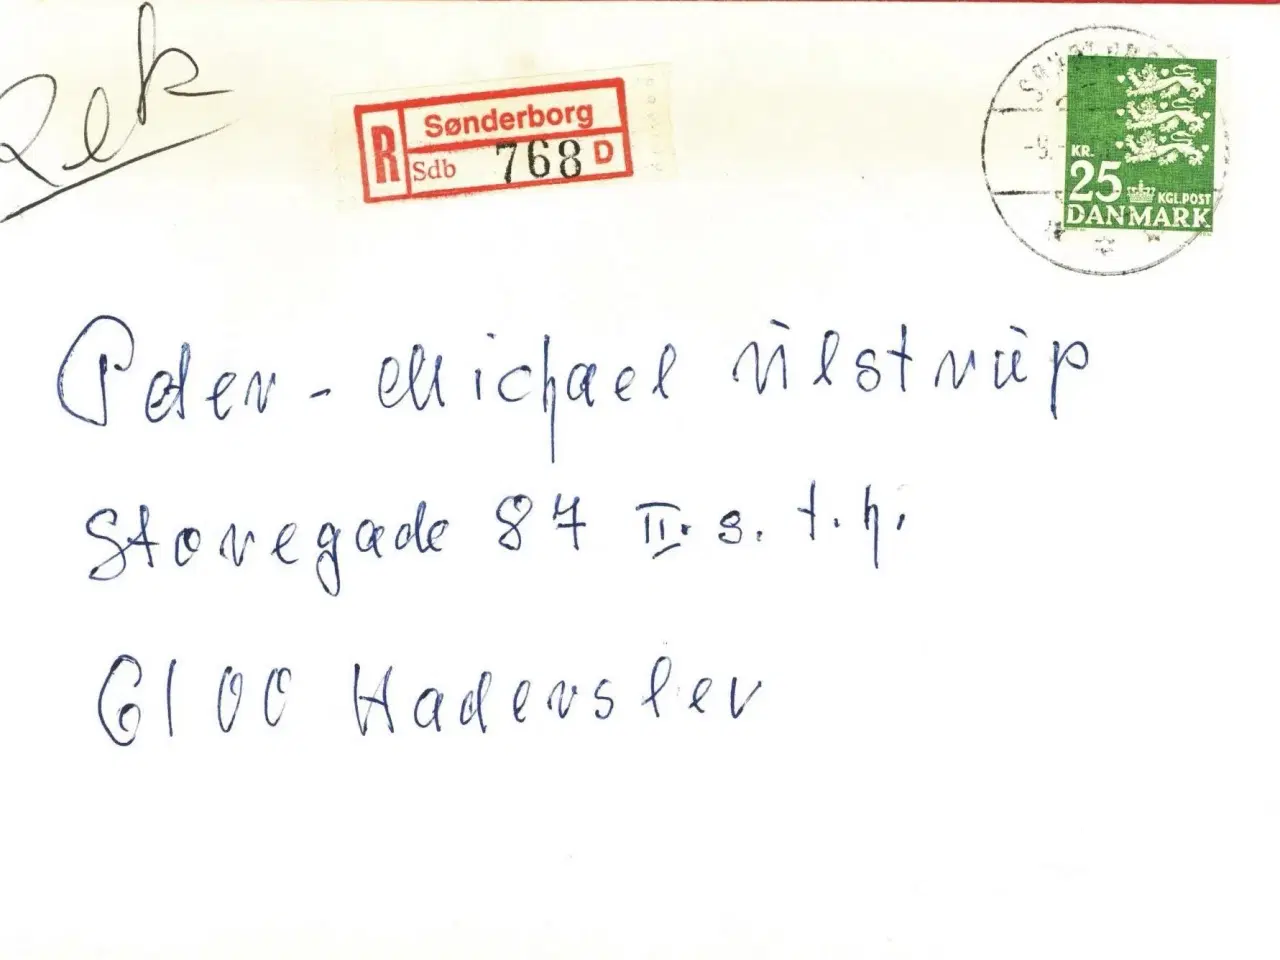 Rek
R Sønderborg
Sdb 768 D
KR.
25 KGL.POST
DANMARK
Peter-Michael Ulstrup
Storegade 87 II. s. t.h.
6100 Haderslev